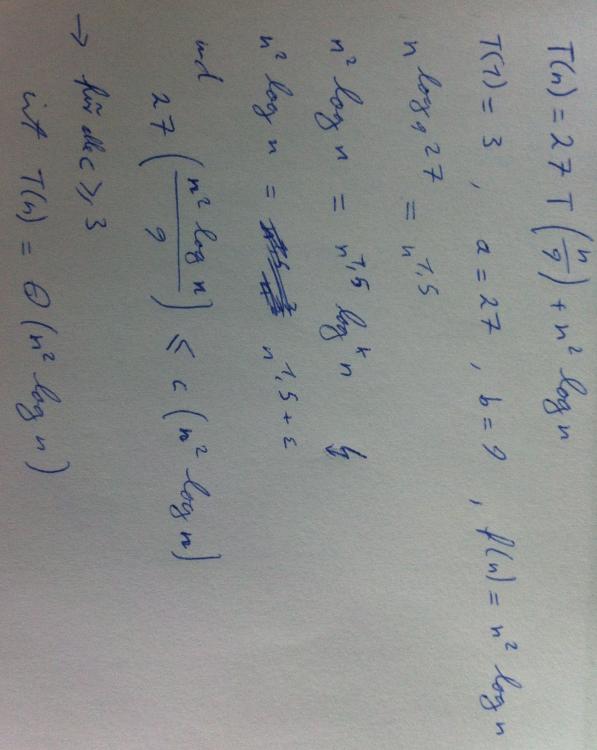 T(n) = 27 T (n/9) + n² log n
T(1) = 3 , a = 27 , b = 9 , f(n) = n² log n
n log₉ 27 = n^1,5
n² log n = n^1,5 log^k n ↯
n² log n = n^1,5 + ε
und
27 (n² log n / 9) ≤ c (n² log n)
→ für alle c ≥ 3
ist T(n) = Θ (n² log n)